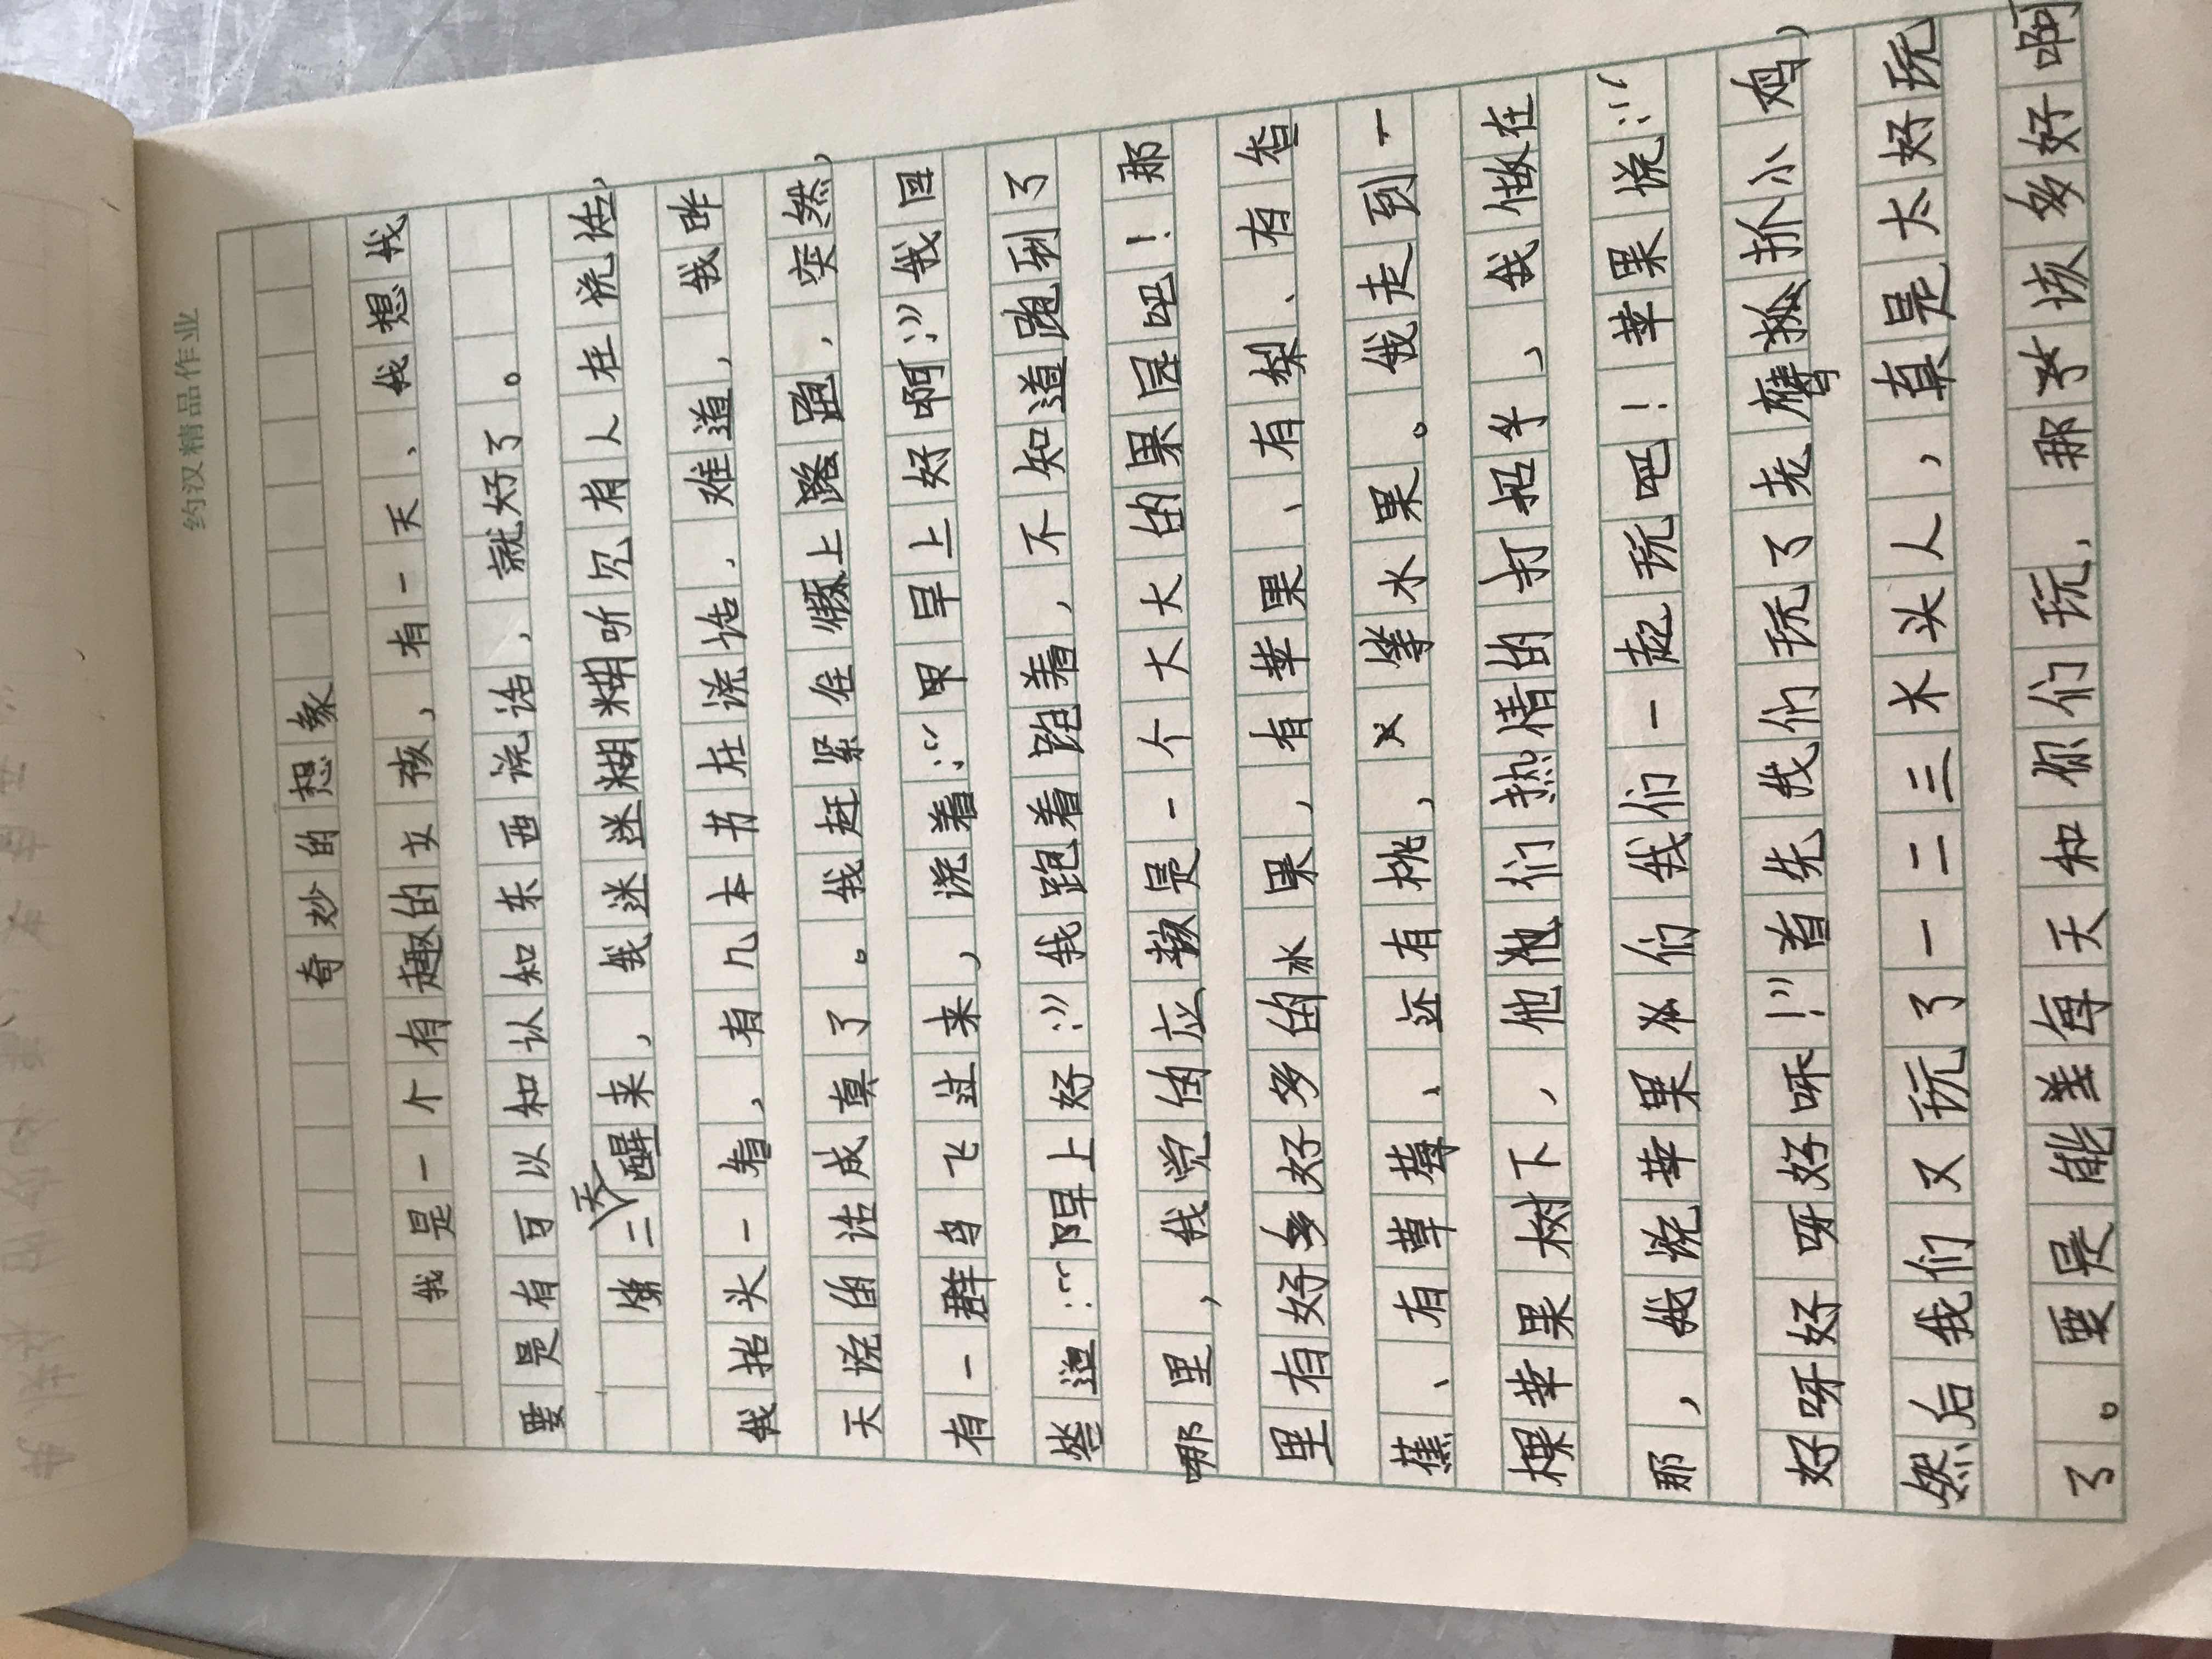 约汉精品作业
奇妙的想象
我是一个有趣的女孩，有一天，我想我
要是有可以和认知东西说话，就好了。
第二天醒来，我迷迷糊糊听见有人在说话，
我抬头一看，有几本书在说话，难道，我昨
天说的话成真了。我赶紧住楼上路跑，突然，
有一群鸟飞过来，说着:“早早上好啊:”我回
答道:“早上好:”我跑着跑着，不知道跑到了
哪里，我觉的应该是一个大大的果园吧！那
里有好多好多的水果，有苹果、有梨、有香
蕉、有草莓、还有桃，等水果。我走到一
棵苹果树下，他他们热情的打招乎，我做在
那，我说苹果们我们一起玩吧！苹果说:“
好呀好呀好呀!”首先我们玩了老鹰抓小鸡，
然后我们又玩了一二三木头人，真是太好玩
了。要是能每天和你们玩，那该多好啊